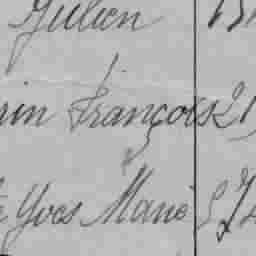 Julien
rin François 21
Yves Marie